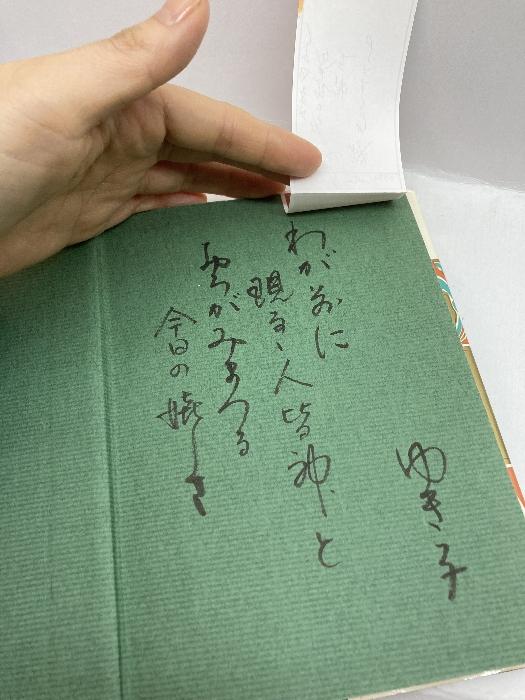 ゆき子
わが前に
現るゝ人皆神と
をろがみまつる
今日の嬉しさ